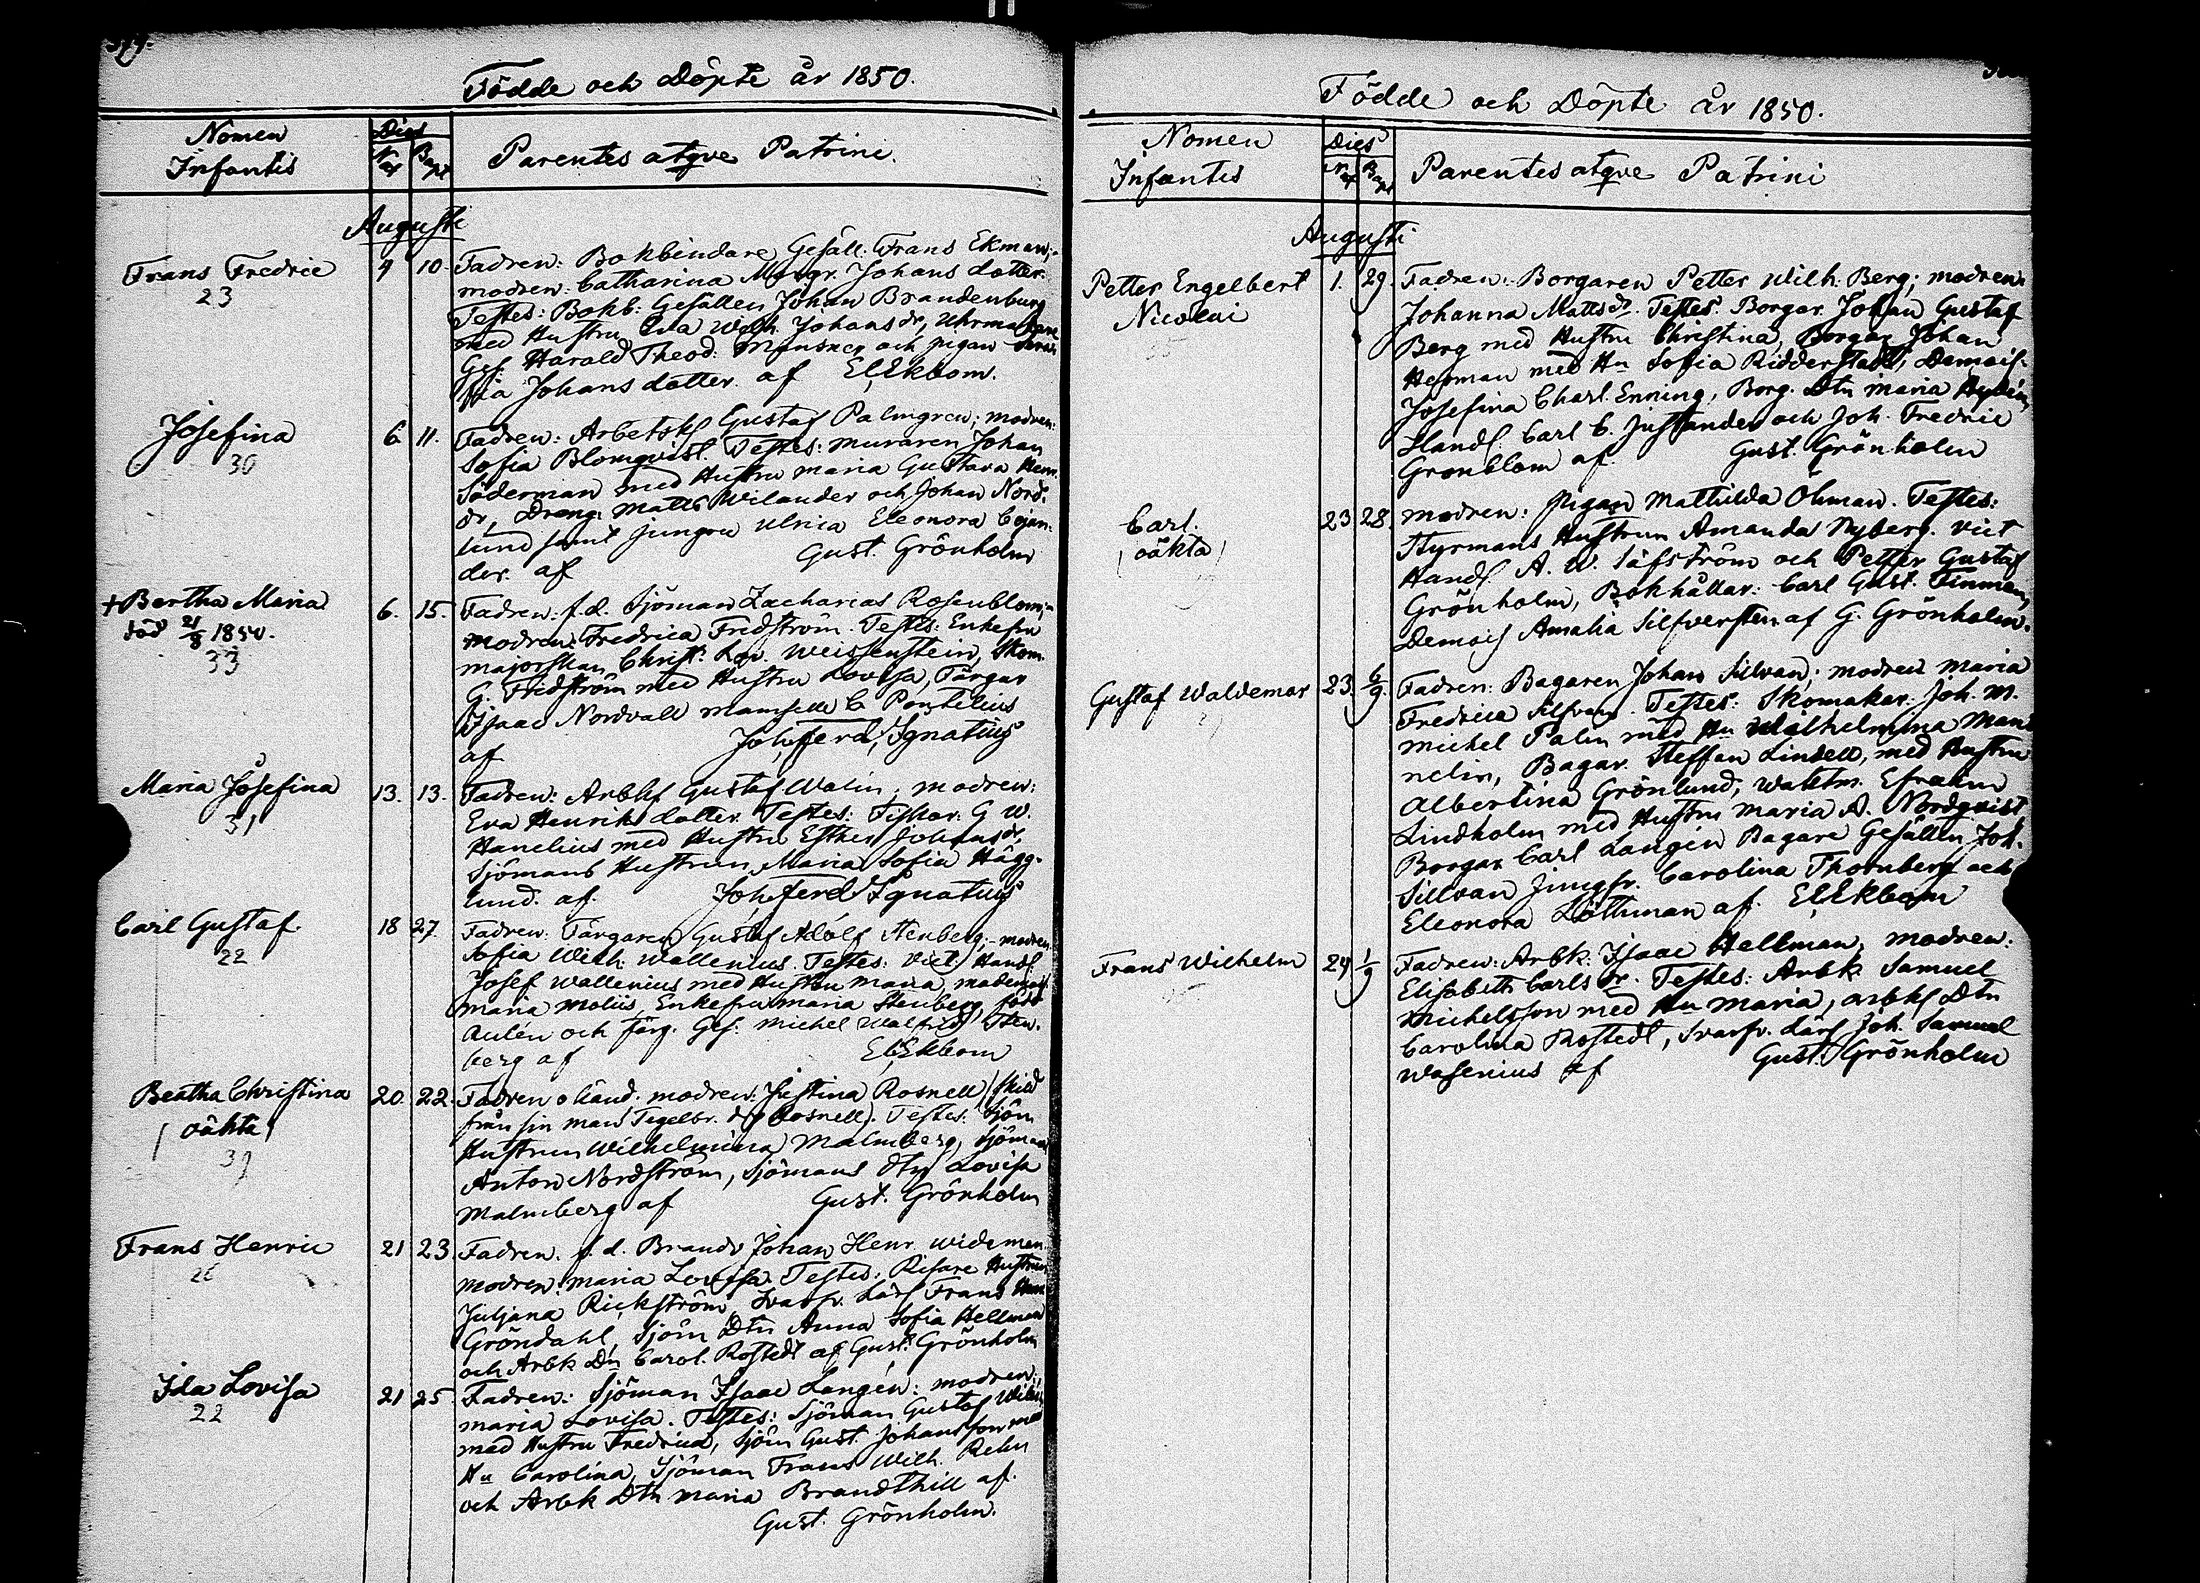 Födde och Döpte år 1850.
Nomen
Infantis
Dies
Nat
Bapt
Parentes atqve Patrini.
Augusti
Frans Fredric
23
4
10.
Fadren: Bokbindare Gesäll: Frans Ekman;
modren: Catharina Margr. Johans dotter.
Testes: Bokb: Gesällen Johan Brandenburg
med Hustru Eva Wilh. Johans dr, Uhrmakare
Ges. Harald Theod: och pigan
fia Johans dotter. af E. Ekbom.
Josefina
30
6.
11.
Fadren: Arbetsk Gustaf Palmgren; modren:
Sofia Blomqvist. Testes: muraren Johan
Söderman med Hustru maria Gustava Hem
dr, Dreng. Matts Wilander och Johan Nord-
lund samt jungru Ulrica Eleonora Cajan-
der. af Gust. Grönholm
+ Bertha Maria
död 21/8 1850.
33
6.
15.
Fadren: f.d. Sjöman Zacharias Rosenblom;
modren: Fredrica Fridström. Testes: Enkefru
majorskan Christ: Lov. Weissenstein, Skom.
G. Fridström med Hustru Lovisa, Färgar
Isaac Nordvall mamsell C. Pontelius
af Joh. Ferd. Ignatius
Maria Josefina
31
13.
13.
Fadren: Arbk Gustaf Walin; modren:
Eva Henriks dotter. Testes: Fiskar. G. W.
Hanelius med Hustru Esther Johans dr,
Sjömans Hustrun Maria Sofia Hägg-
lund. af. Joh. Ferd. Ignatius
Carl Gustaf
22
18
27.
Fadren: Färgaren Gustaf Adolf Stenberg; modren
Sofia Wilh. Wallenius. Testes: Vict. Handl.
Josef Wallenius med Hustru Maria, mademois
maria Moliis, Enkefru maria Stenberg, född
Aulén och färg. Ges. Michel Walfrid Sten-
berg af E. Ekbom
Beatha Christina
(oäkta)
39
20.
22.
Fadren okänd. modren: Justina Rosnell (skild
från sin man Tegelbr. d.y Rosnell). Testes: Sjöm
Hustrun Wilhelmina Malmberg, Sjöman
Anton Nordström, Sjömans dtn Lovisa
Malmberg af Gust. Grönholm
Frans Henric
26
21
23.
Fadren. f.d. Brandv Johan Henr. Wideman
modren: maria Lovisa. Testes: Risare Hustrun
Juljana Rickström, Svarfv. Lärl Frans Hen
Gröndahl, Sjöm Dtn Anna Sofia Hellman
och Arbk Dn Carol. Rostedt af Gust. Grönholm
Ida Lovisa
22
21
25.
Fadren: Sjöman Isaac Langén: modren:
maria Lovisa. Testes: Sjöman Gustaf
med Hustru Fredrica, Sjöm Gust. Johansson med
Hu Carolina, Sjöman Frans Wilh. Rehn
och Arbk Dtn maria Brandthill af.
Gust. Grönholm.
Födde och Döpte år 1850.
Nomen
Infantis
Dies
Nat
Bapt
Parentes atqve Patrini
Augusti
Petter Engelbert
Nicolai
1.
29.
Fadren: Borgaren Petter Wilh. Berg; modren:
Johanna Matts dr. Testes: Borgar Johan Gustaf
Berg med Hustru Christina, Borgar Johan
Herman med Hu Sofia Ridderstadt, Demois.
Josefina Charl. Enning, Borg. Dtn maria
Handl. Carl C. Juslander och Joh. Fredric
Grönblom af. Gust. Grönholm
Carl.
(oäkta)
23
28.
modren: pigan Mathilda Öhman. Testes:
Styrmans Hustrun Amanda Nyberg. Vict
Handl A. W. Säfström och Petter Gustaf
Grönholm, Bokhållar: Carl Gust. Finman,
Demois Amalia Silfversten af G. Grönholm.
Gustaf Waldemar
23.
6/9.
Fadren: Bagaren Johan Sillvan; modren maria
Fredrica Silfvan. Testes: Skomakar. Joh. M.
Michel Palm med Hu Wilhelmina Man
nelin, Bagar. Steffan Lindell, med Hustru
Albertina Grönlund, waktm. Efraim
Lindholm med Hustru maria A. Nordqvist
Borgar Carl Langén Bagare Gesällen Joh.
Sillvan Jungfr. Carolina Thornberg och
Eleonora Löthman af. E. Ekbom
Frans Wilhelm
24
1/9
Fadren: Arbk: Isaac Hellman, modren:
Elisabeth Carls dr. Testes: Arbk Samuel
Michelsson med Hu Maria, arbk Dtn
Carolina Rostedt, Svarfv. Lärl Joh. Samuel
Wasenius af Gust. Grönholm